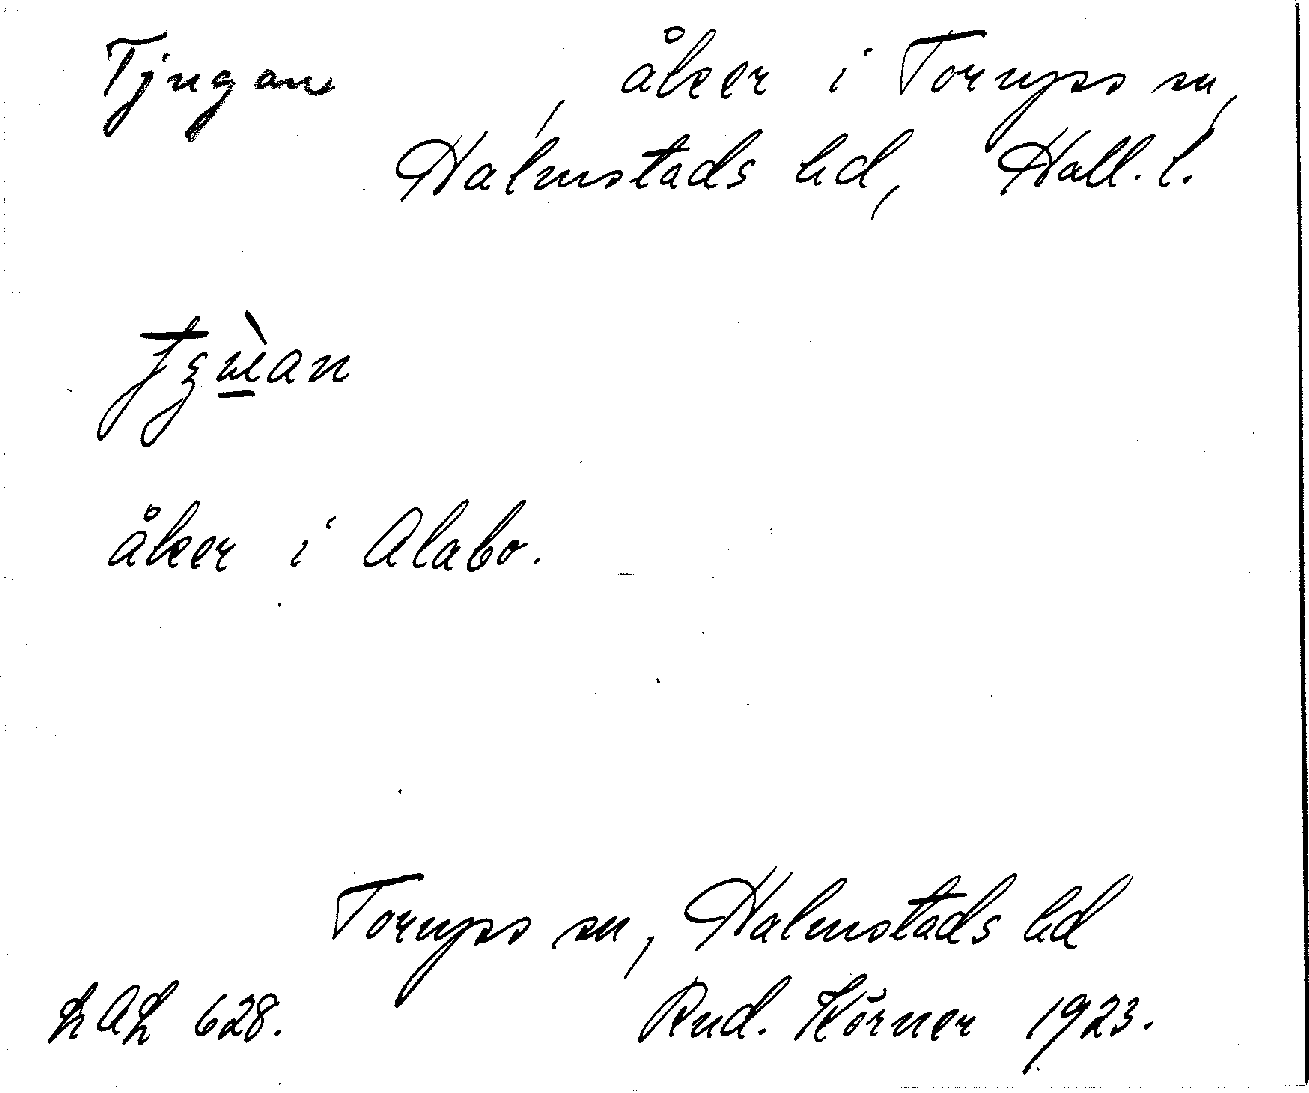 Tjugan, åker i Torups sn,
Halmstads hd, Hall. l.
åker i Alabo.
Torups sn, Halmstads hd
LAL 628. Rud. Körner 1923.